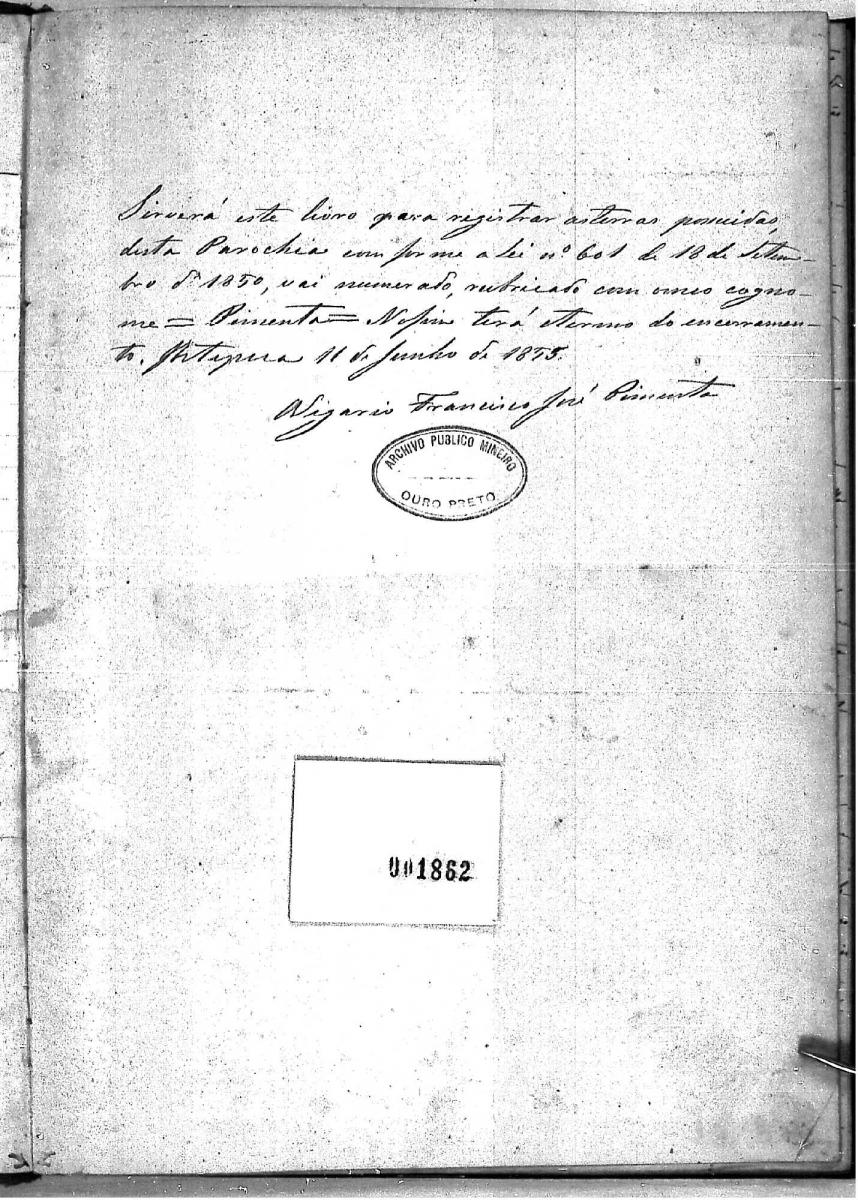 Servirá este livro para registrar as terras possuidas,
desta Parochia comforme a Lei nº 601 de 18 de Setem-
bro dº 1850, vai numerado, rubricado com o meo cogno-
me = Pimenta = No fim terá o termo do encerramen-
to. 11 de Junho de 1855.
Vigario Francisco José Pimenta
ARCHIVO PUBLICO MINEIRO
OURO PRETO
001862